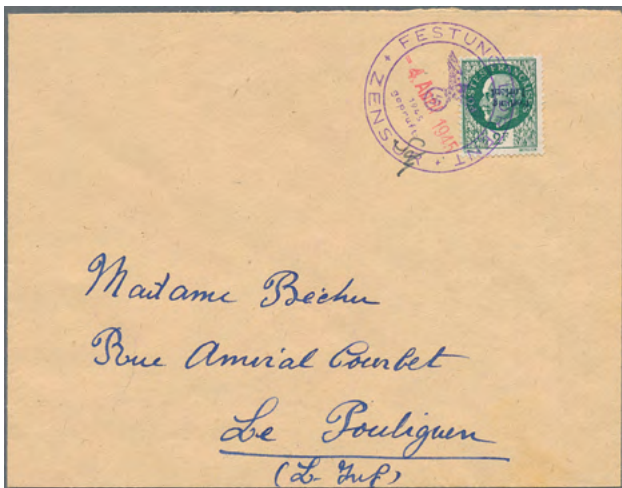 FESTUN
ZENSN
NT
- 4. AVR 1945
1945
Geprüft
POSTES FRANÇAISES
2F
Madame Béchu
Rue Amiral Courbet
Le Pouliguen
(L. Inf)